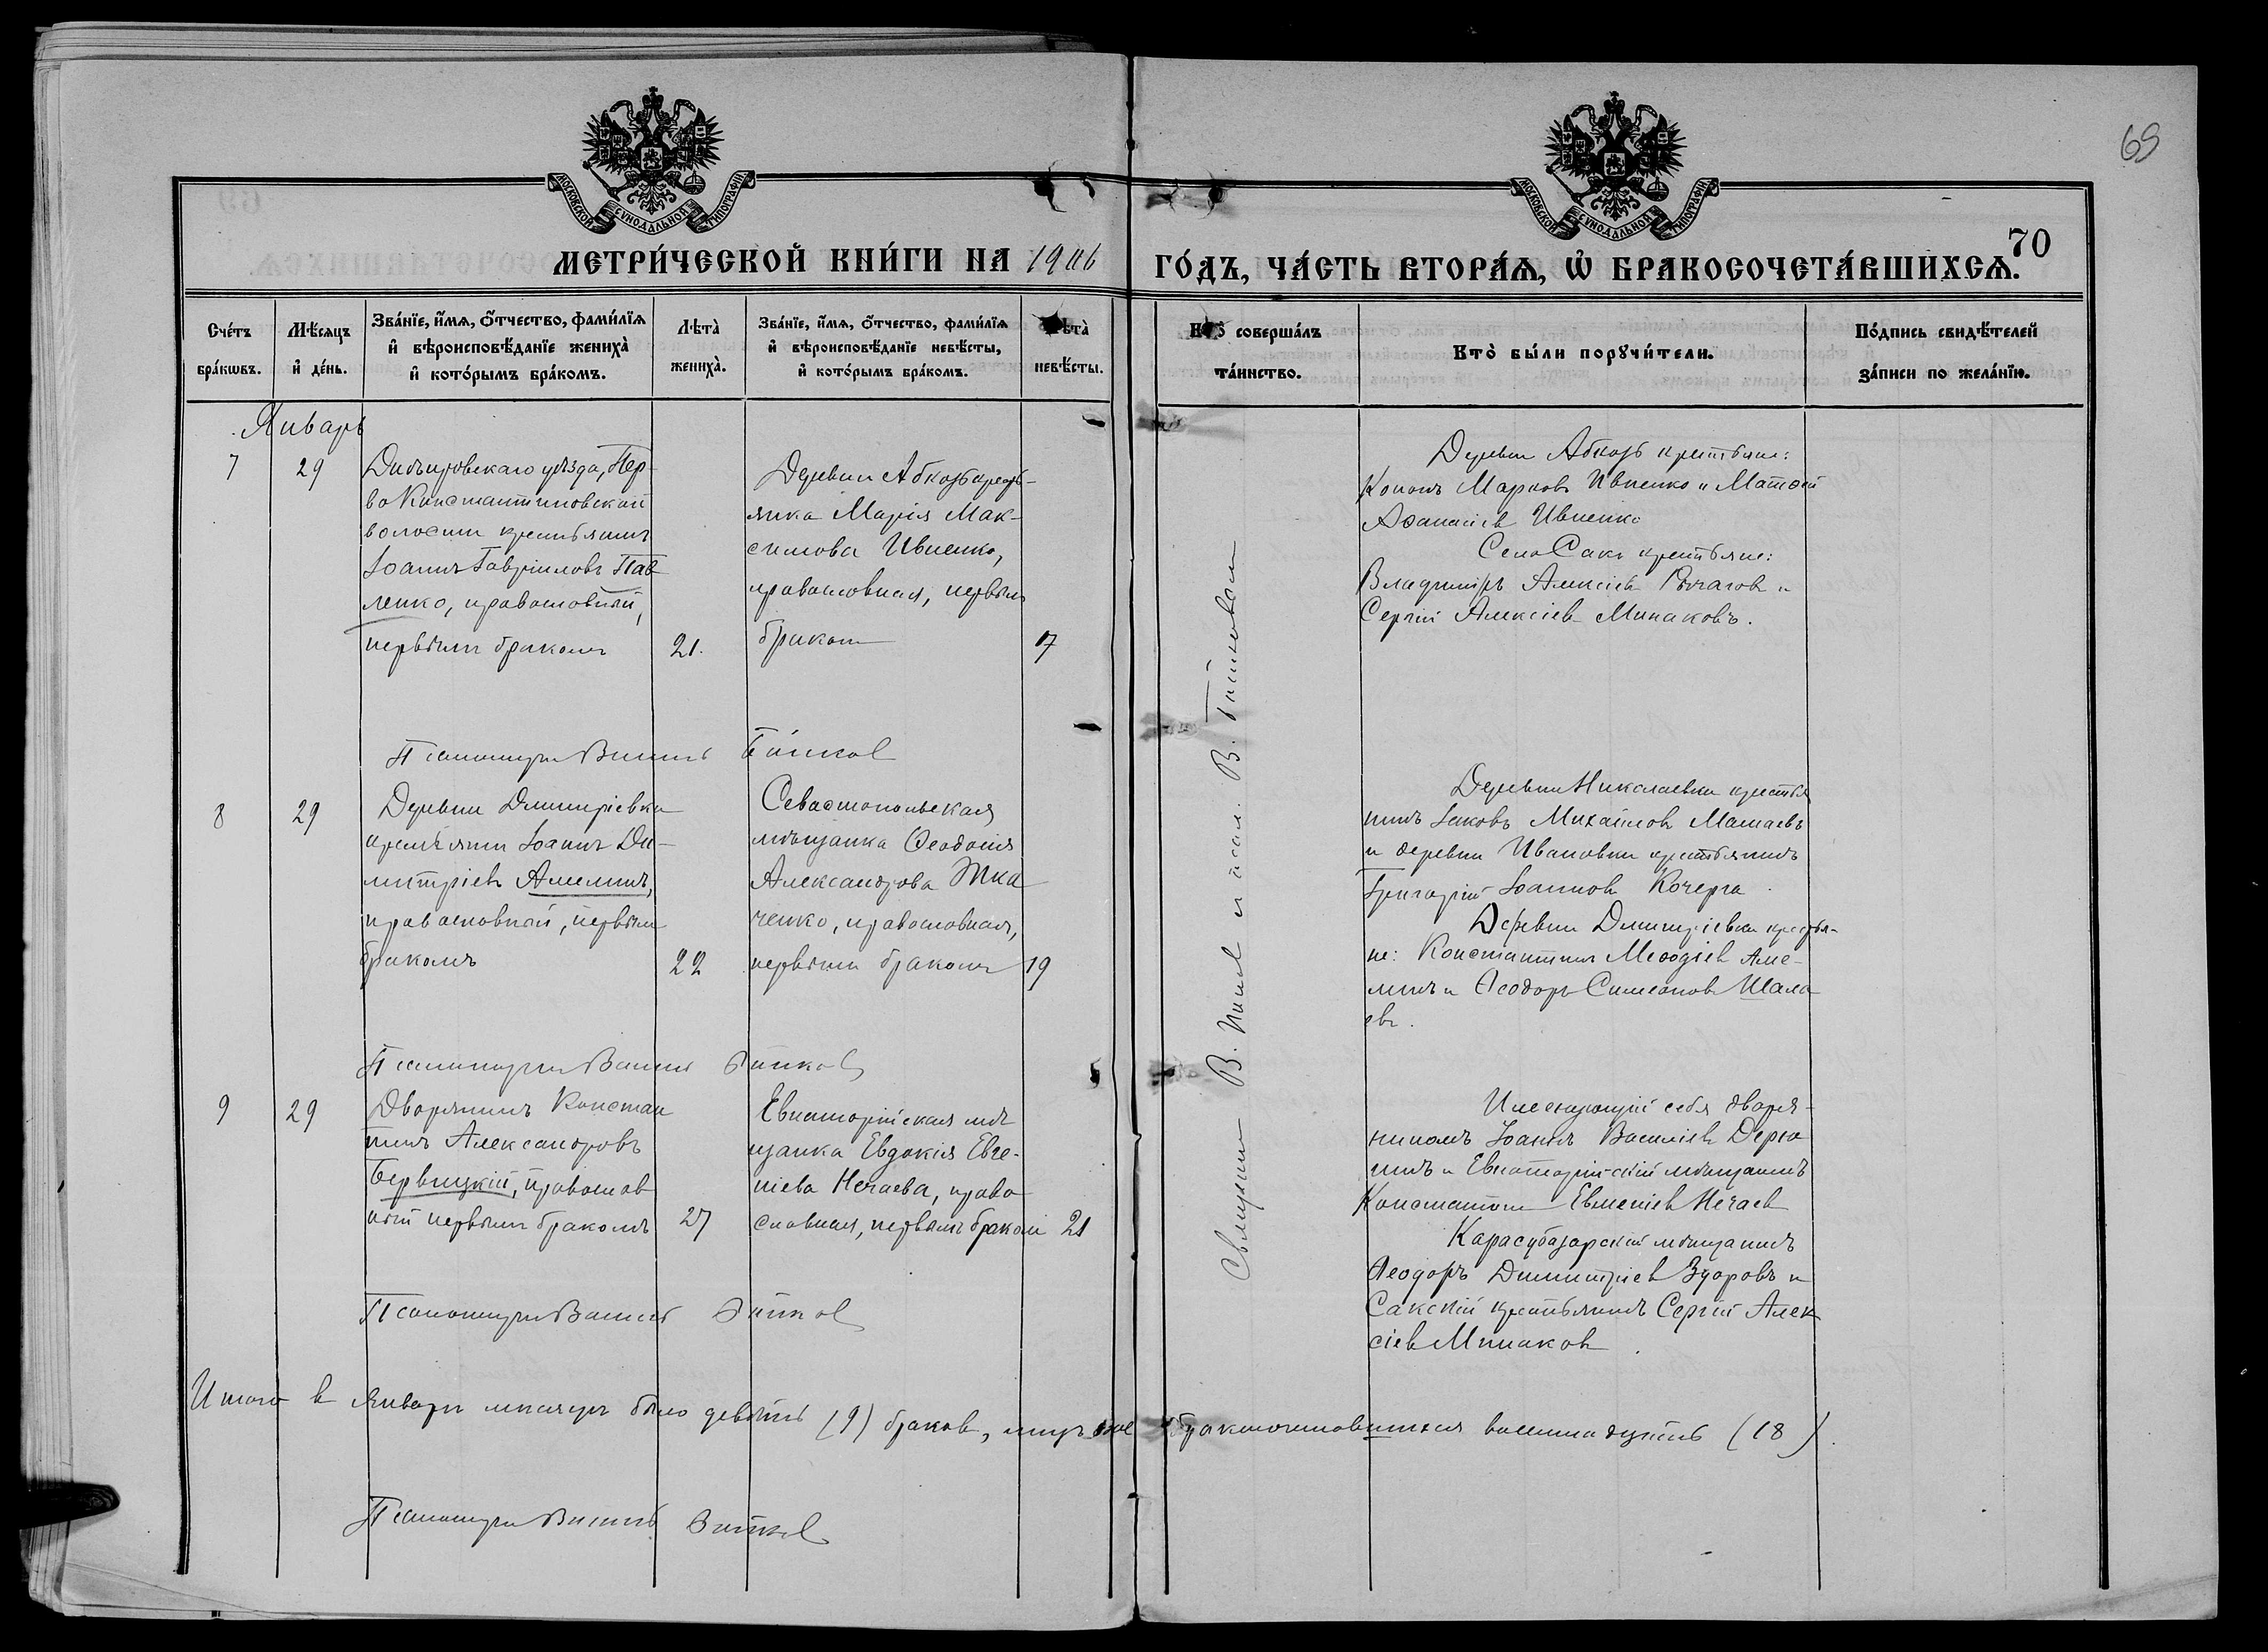 69
70
МОСКОВСКОЙ СУНОДАЛЬНОЙ ТИПОГРАФІИ
МОСКОВСКОЙ СУНОДАЛЬНОЙ ТИПОГРАФІИ
МЕТРИ́ЧЕСКОЙ КНИ́ГИ НА 1906
ГО́ДЪ, ЧА́СТЬ ВТОРА́Ѧ, Ѡ҆ БРАКОСОЧЕТА́ВШИХСѦ.
Сче́тъ бра́кѡвъ.
Мѣ́сѧцъ и҆ де́нь.
Зва́нїе, и҆́мѧ, ѻ҆́тчество, фами́лїѧ и҆ вѣроисповѣ́данїе жениха̀ и҆ кото́рымъ бра́комъ.
Лѣта̀ жениха̀.
Зва́нїе, и҆́мѧ, ѻ҆́тчество, фами́лїѧ и҆ вѣроисповѣ́данїе невѣ́сты, и҆ кото́рымъ бра́комъ.
Лѣта̀ невѣ́сты.
Кто̀ соверша́лъ та́инство.
Кто̀ бы́ли порꙋчи́тели.
По́дпись свидѣ́телей за́писи по жела́нїю.
Январь
7
29
Днѣпровскаго уѣзда, Пер-
во Константиновской
волости крестьянинъ
Іоаннъ Гавріиловъ Пав
ленко, православный,
первымъ бракомъ
21.
Деревни Абкозъ кресть-
янка Марія Мак-
симова Ивненко,
православная, первымъ
бракомъ
17
Деревни Абкозъ крестьяне:
Кононъ Марковъ Ивненко и Матѳей
Аѳанасіевъ Ивненко
Села Саки крестьяне:
Владиміръ Алексіевъ Рычаговъ и
Сергій Алексіевъ Минаковъ.
Псаломщикъ
8
29
Деревни Димитріевки
крестьянинъ Іоаннъ Ди-
митріевъ Амелинъ,
православный, первымъ
бракомъ
22
Севастопольская
мѣщанка Ѳеодосія
Александрова Тка
ченко, православная,
первымъ бракомъ
19
Деревни Николаевки крестья
нинъ Іаковъ Михаиловъ Маматевъ
и деревни Ивановки крестьянинъ
Григорій Іоанновъ Кочерга.
Деревни Димитріевки крестья-
не: Константинъ Меѳодіевъ Аме-
линъ и Ѳеодоръ Симеоновъ Шала
евъ.
Псаломщикъ
9
29
Дворянинъ Констан
тинъ Александровъ
Бервицкій, православ
ный первымъ бракомъ
27
Евпаторійская мѣ
щанка Евдокія Евге-
ніева Нечаева, право
славная, первымъ бракомъ
21
Именующій себя дворя-
ниномъ Іоаннъ Василіевъ Дерю
гинъ и Евпаторійскій мѣщанинъ
Константинъ Евгеніевъ Нечаевъ
Карасубазарскій мѣщанинъ
Ѳеодоръ Димитріевъ Здоровъ и
Сакскій крестьянинъ Сергій Алек
сіевъ Минаковъ.
Псаломщикъ
Священникъ В. и псал. В.
Итого въ Январѣ мѣсяцѣ было девять (9) браковъ, лицъ же бракосочетавшихся восемнадцать (18).
Псаломщикъ